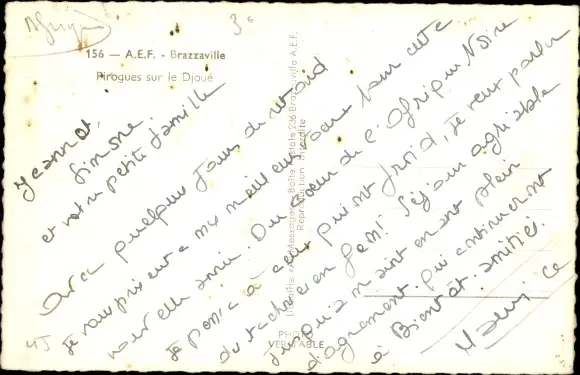 3c
156 — A.E.F. - Brazzaville
Pirogues sur le Djoué
Jeannot,
Simone,
et votre petite famille
Avec quelques jours de retard
Je vous présente mes meilleurs pour cette
nouvelle année. Du cœur de l'Afrique Noire
Je pense à ceux qui ont froid, je veux parler
du en Séjour agréable
jusqu'à maintenant plein
d'agrément. qui continueront
à Bientôt. amitiés.
Maurice
Messageries - Boîte Postale 236 Brazzaville A.E.F.
Reproduction Interdite
PHOTO
VERITABLE